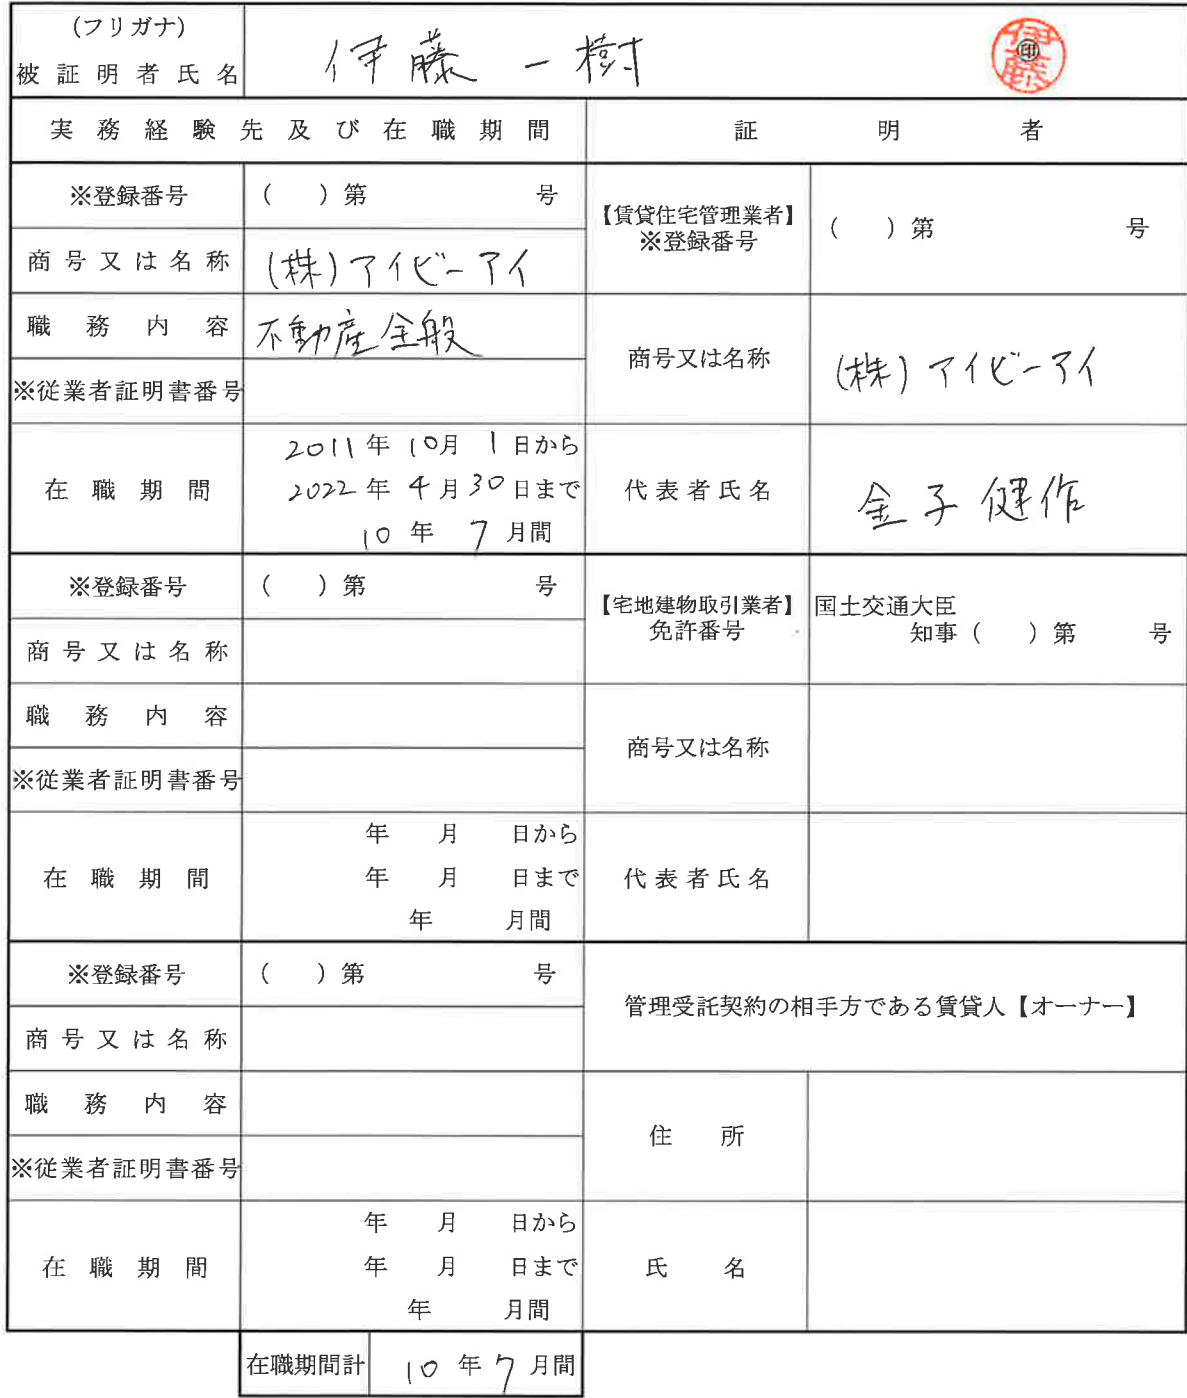 (フリガナ)
被証明者氏名 伊藤 一樹 伊藤 ㊞
実務経験先及び在職期間 証明者
※登録番号 ( )第 号
商号又は名称 (株)アイビーアイ
職務内容 不動産全般
※従業者証明書番号
在職期間 2011年10月1日から
2022年4月30日まで
10年7月間
【賃貸住宅管理業者】
※登録番号 ( )第 号
商号又は名称 (株)アイビーアイ
代表者氏名 金子健作
※登録番号 ( )第 号
商号又は名称
職務内容
※従業者証明書番号
在職期間 年 月 日から
年 月 日まで
年 月間
【宅地建物取引業者】 国土交通大臣
免許番号 知事( )第 号
商号又は名称
代表者氏名
※登録番号 ( )第 号
商号又は名称
職務内容
※従業者証明書番号
在職期間 年 月 日から
年 月 日まで
年 月間
管理受託契約の相手方である賃貸人【オーナー】
住所
氏名
在職期間計 10年7月間